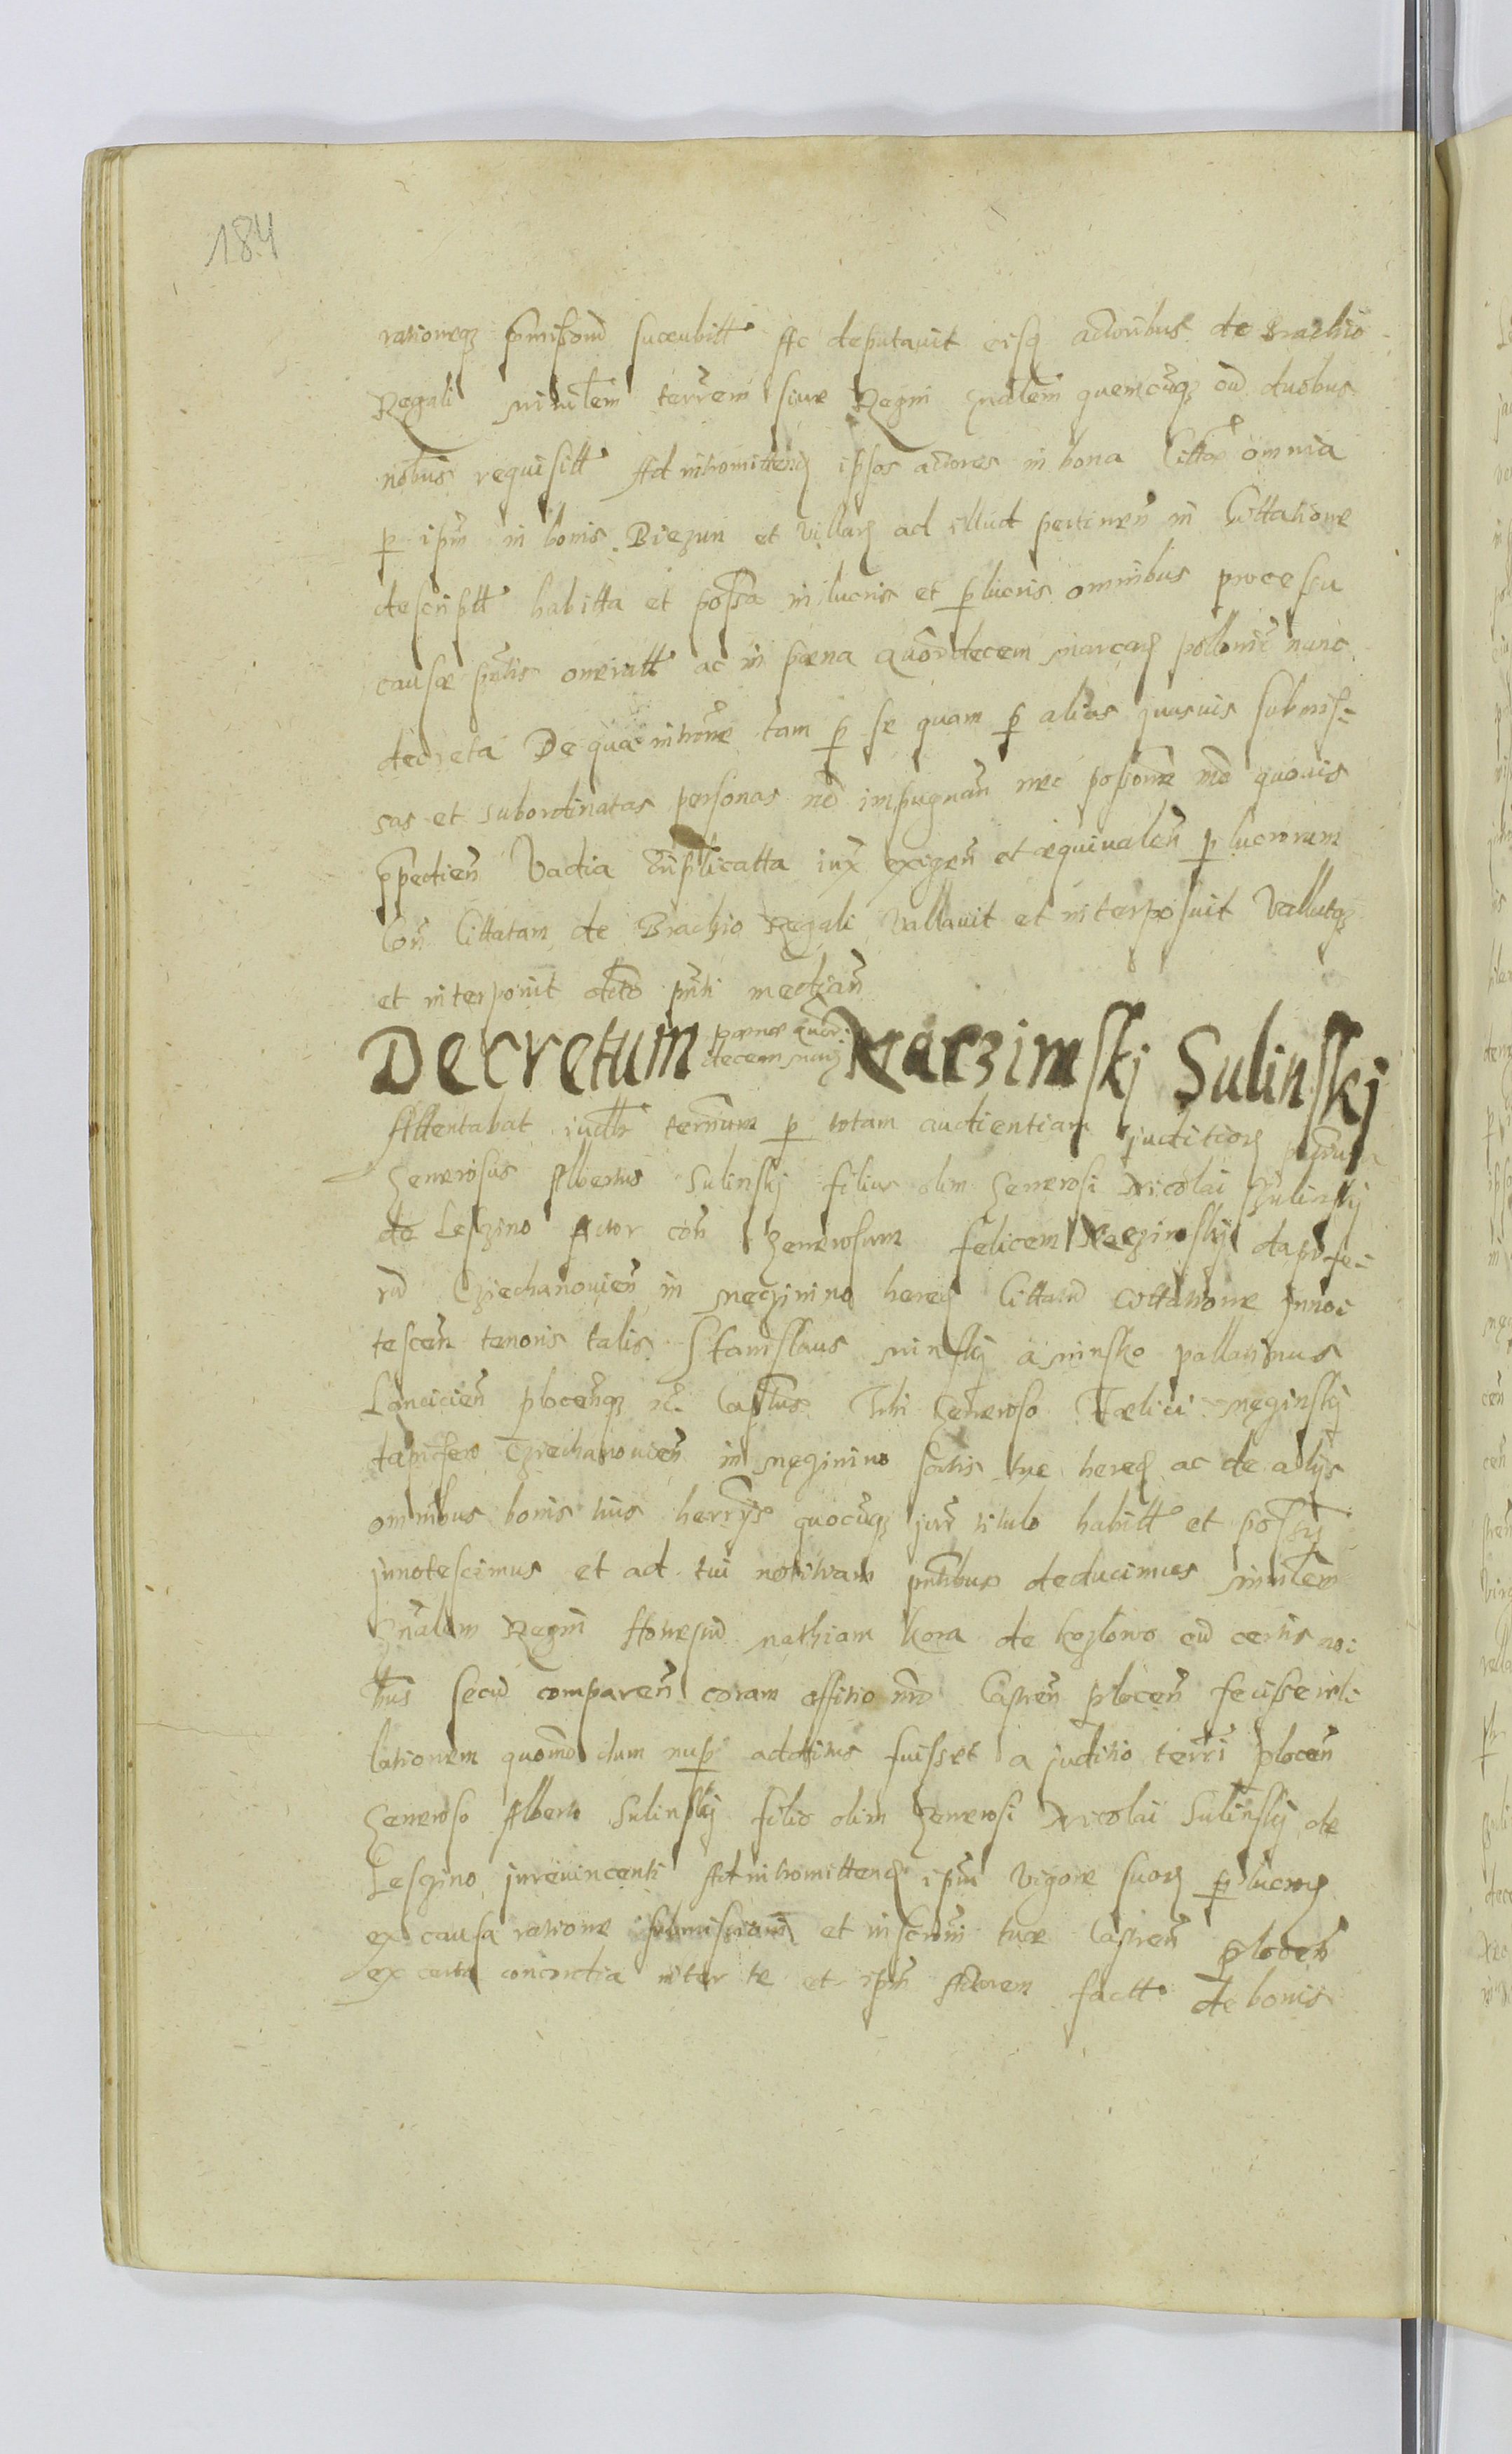 184
rationeq3 succubitt Ac deputavit eisq actoribus de Brachio
Regali terrem siue Regni gnalem quemcuq3 cu duobus
nobus requisitt Ad intromittend ipsos actores in bona Citta omnia
p ipm in bonis Biezun et Villas ad illud pertinen in Cittatione
descriptt habitta et possa in lucris et plucris omnibus processu
causæ pntis oneratt ac in pæna quordecem marcas pollonic nunc
decreta De qua introne tam p se quam p alias quasuis submis=
sas et subordinatas personas no impugnan nec quouis
Vadia iux exigen et æquiualen plucrorum
Con Cittatam de Brachio Regali Vallauit et interposuit Vallatq3
et interponit dcto pnti median
Decretum pænæ quor decem marc Naczimskj Sulinskj
Attentabat judtr termnum p totam audientiam juditior
Generosus Albertus Sulinskj filius olim Generosi Nicolai Sulinskj
de Leszino Actor con Generosum felicem Neczinskj dapife=
ru Cziechanouien in neczinino hered Cittatu Cittatione Innoi
tescen tenoris talis Stanislaus minskj a minsko pallatinus
Lancicien plocenq3 Captus Tibi Generoso Fælici nęginskj
dapifero Cziechanouien in nęzinino sortis tuæ hered ac de alijs
omnibus bonis tuis quocuq3 jure titulo habitt et possis
jnnotescimus et ad tui notitiam pntibus deducimus mintlem
Gnalem Regni Honestu mathiam kora de kozlowo cu certis noi
bus secu comparen coram offitio nro Castren plocen fecisse re
lationem quomo dum nup additus fuisset a juditio terri plocen
Generoso Alberto Sulinskj filio olim Generosi Nicolai Sulinskj de
Leszino jureuincenti Ad intromittend ipm Vigore suor plucror
ex causa ratione submissionis et inscronis tuæ Castren plocen
ex certa concordia inter te et ipm Actorem factt de bonis